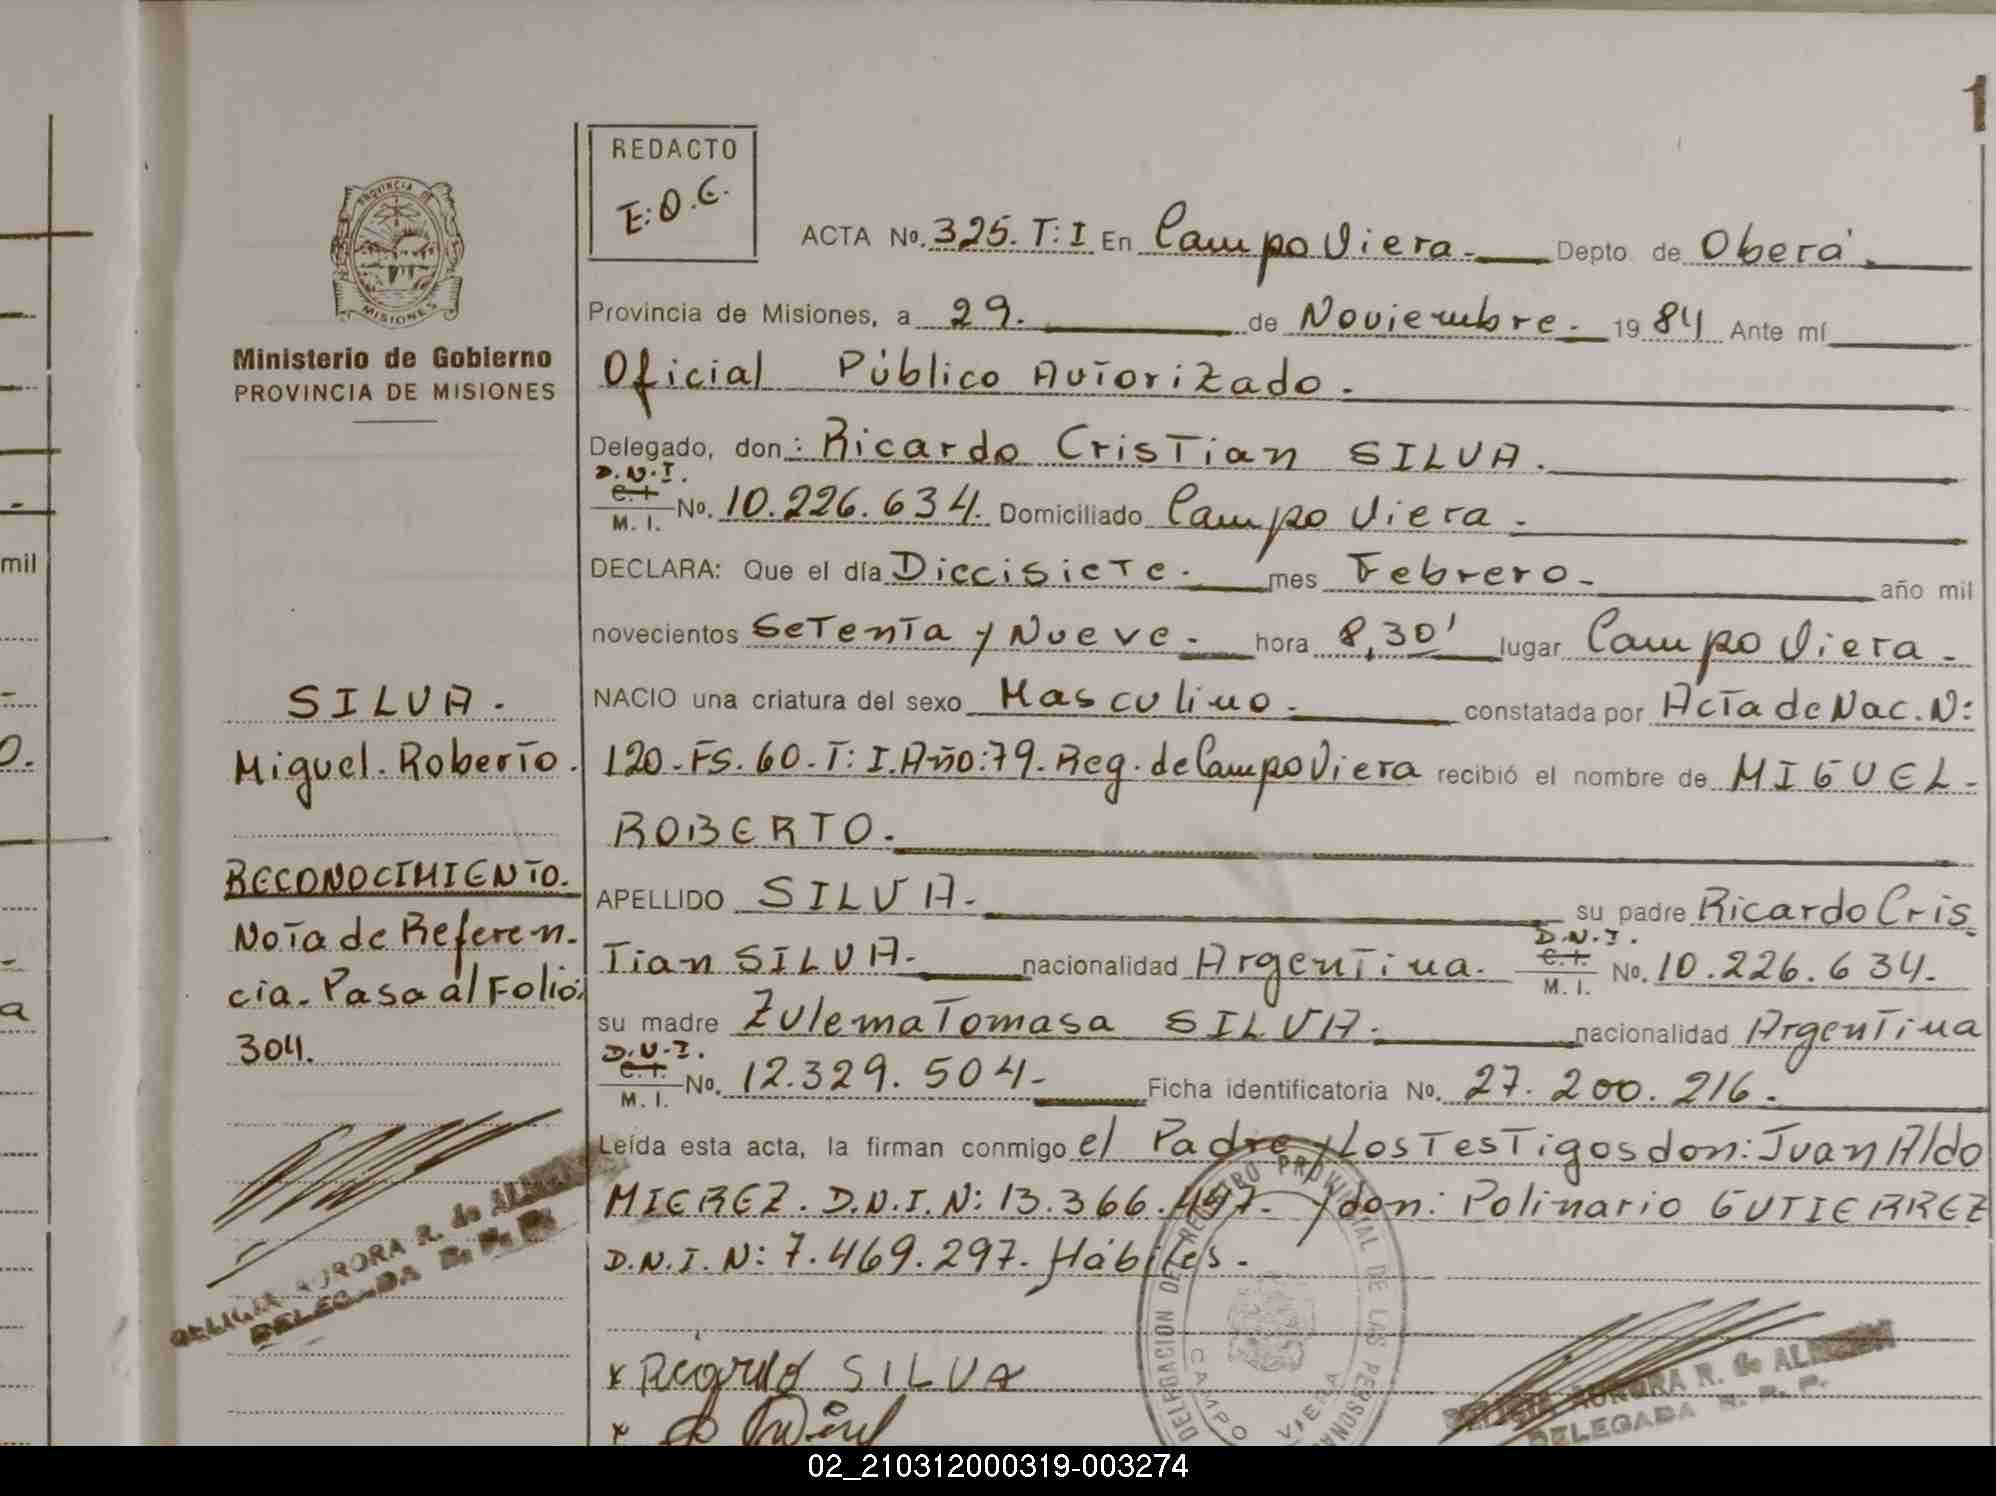 1
REDACTO
E.O.C.
PROVINCIA DE
MISIONES
Ministerio de Gobierno
PROVINCIA DE MISIONES
ACTA No. 325. T: I En Campo Viera. Depto. de Oberá.
Provincia de Misiones, a 29. de Noviembre. 1984 Ante mí
Oficial Público Autorizado.
Delegado, don: Ricardo Cristian SILVA.
D.N.I.
C.I.
M. I. No. 10.226.634. Domiciliado Campo Viera.
DECLARA: Que el día Diecisiete. mes Febrero. año mil
novecientos Setenta y Nueve. hora 8,30' lugar Campo Viera.
NACIO una criatura del sexo Masculino. constatada por Acta de Nac. N:
120-Fs. 60. T: I. Año: 79. Reg. de Campo Viera recibió el nombre de MIGUEL
ROBERTO.
APELLIDO SILVA. su padre Ricardo Cris
D.N.I.
tian SILVA. nacionalidad Argentina. C.I. M. I. No. 10.226.634.
su madre Zulema Tomasa SILVA. nacionalidad Argentina
D.N.I.
C.I.
M. I. No. 12.329.504- Ficha identificatoria No. 27.200.216.
Leída esta acta, la firman conmigo el Padre y Los Testigos don: Juan Aldo
MIEREZ. D.N.I. N: 13.366.497. y don: Polinario GUTIERREZ
D.N.I. N: 7.469.297. Hábiles.
x Ricardo SILVA
x
SILVA.
Miguel. Roberto.
RECONOCIMIENTO.
Nota de Referen-
cia. Pasa al Folio:
304.
AURORA R. de
DELEGADA R. P. P.
DELEGACION DEL REGISTRO PROVINCIAL DE LAS PERSONAS
CAMPO VIERA
AURORA R. de
DELEGADA R. P. P.
mil
O.
a
02_210312000319-003274